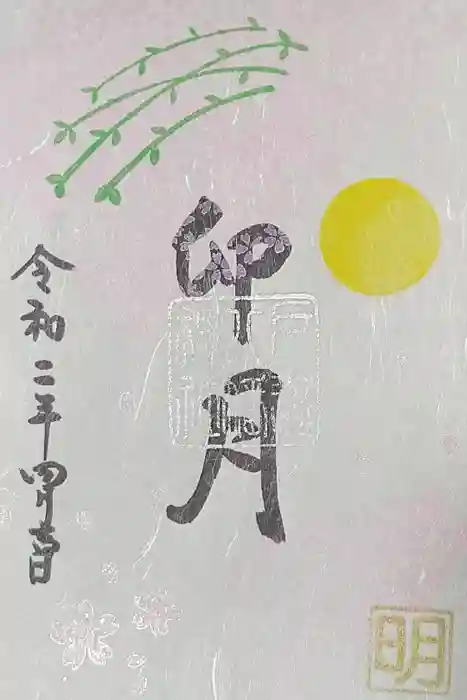 卯月
令和二年四月吉日
明